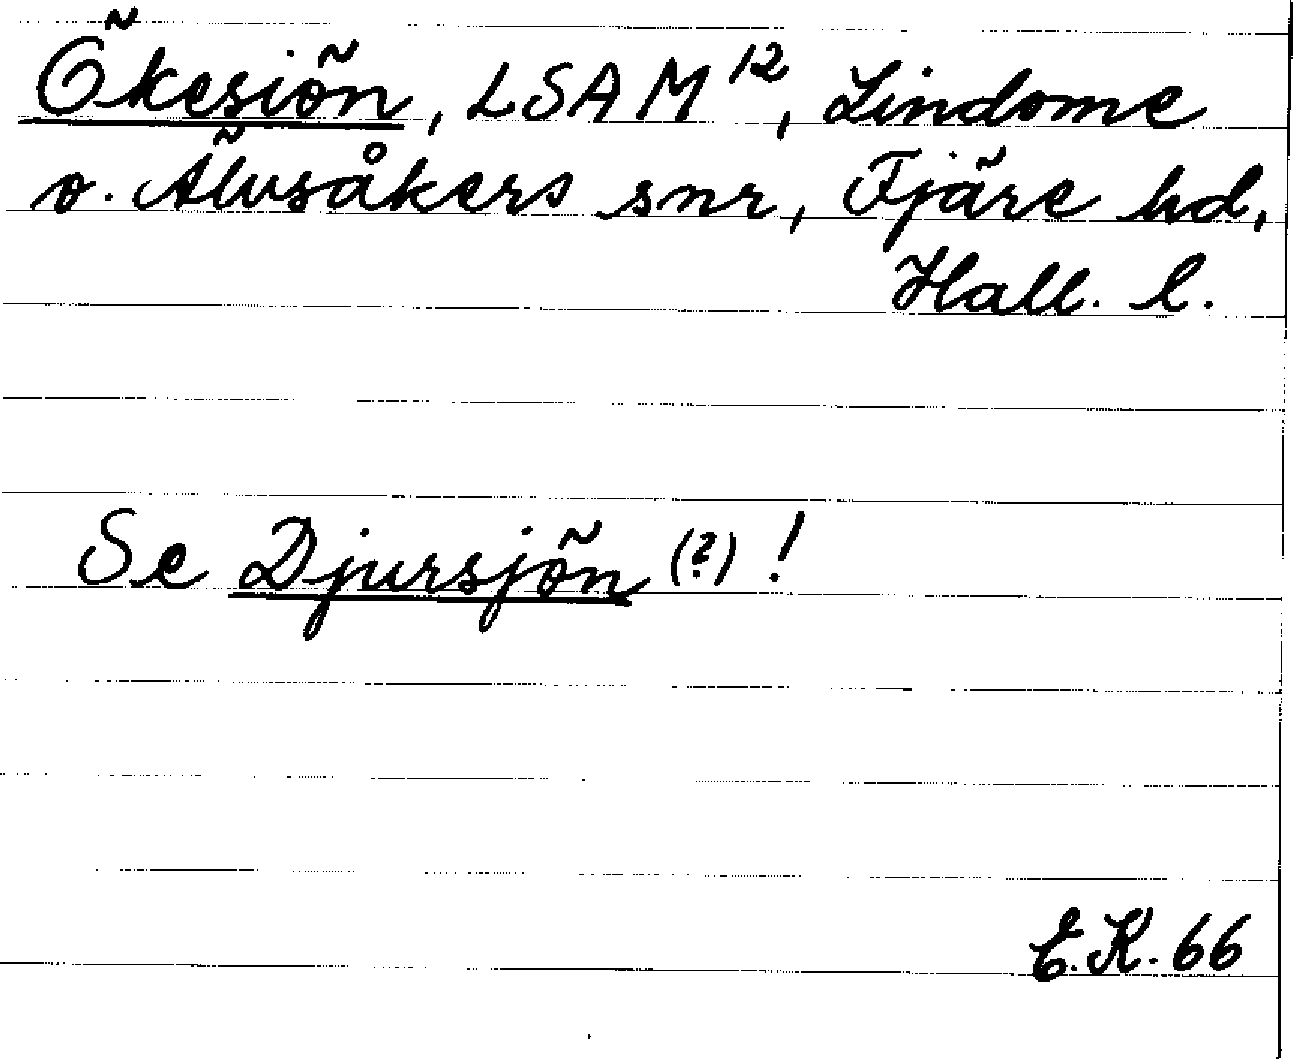 Ökesiön, LSA M12, Lindome
o. Älvsåkers snr, Fjäre hd,
Hall. l.
Se Djursjön (?) !
E.K. 66